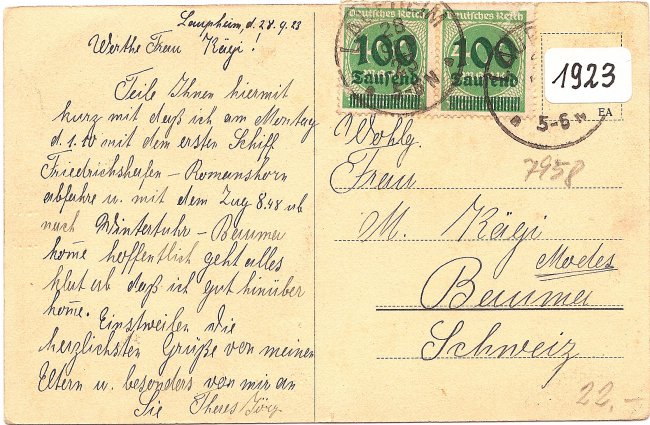 Laupheim, d. 28.9.23
Werthe Frau Kägi!
Teile Ihnen hiermit
kurz mit daß ich am Montag
d. 1.10 mit dem ersten Schiff
Friedrichshafen - Romanshorn
abfahre u. mit dem Zug 8.48 ab
nach Winterthur - Bauma
kome hoffentlich geht alles
klat ab daß ich gut hinüber
kome. Einstweilen die
herzlichsten Grüße von meinen
Eltern u. besonders von mir an
Sie Theres Jörg
Deutsches Reich
100
Tausend
Deutsches Reich
100
Tausend
LAUPHEIM
5-6 N
1923
EA
7958
Wohlg.
Frau
M. Kägi
Modes
Bauma
Schweiz
22.-